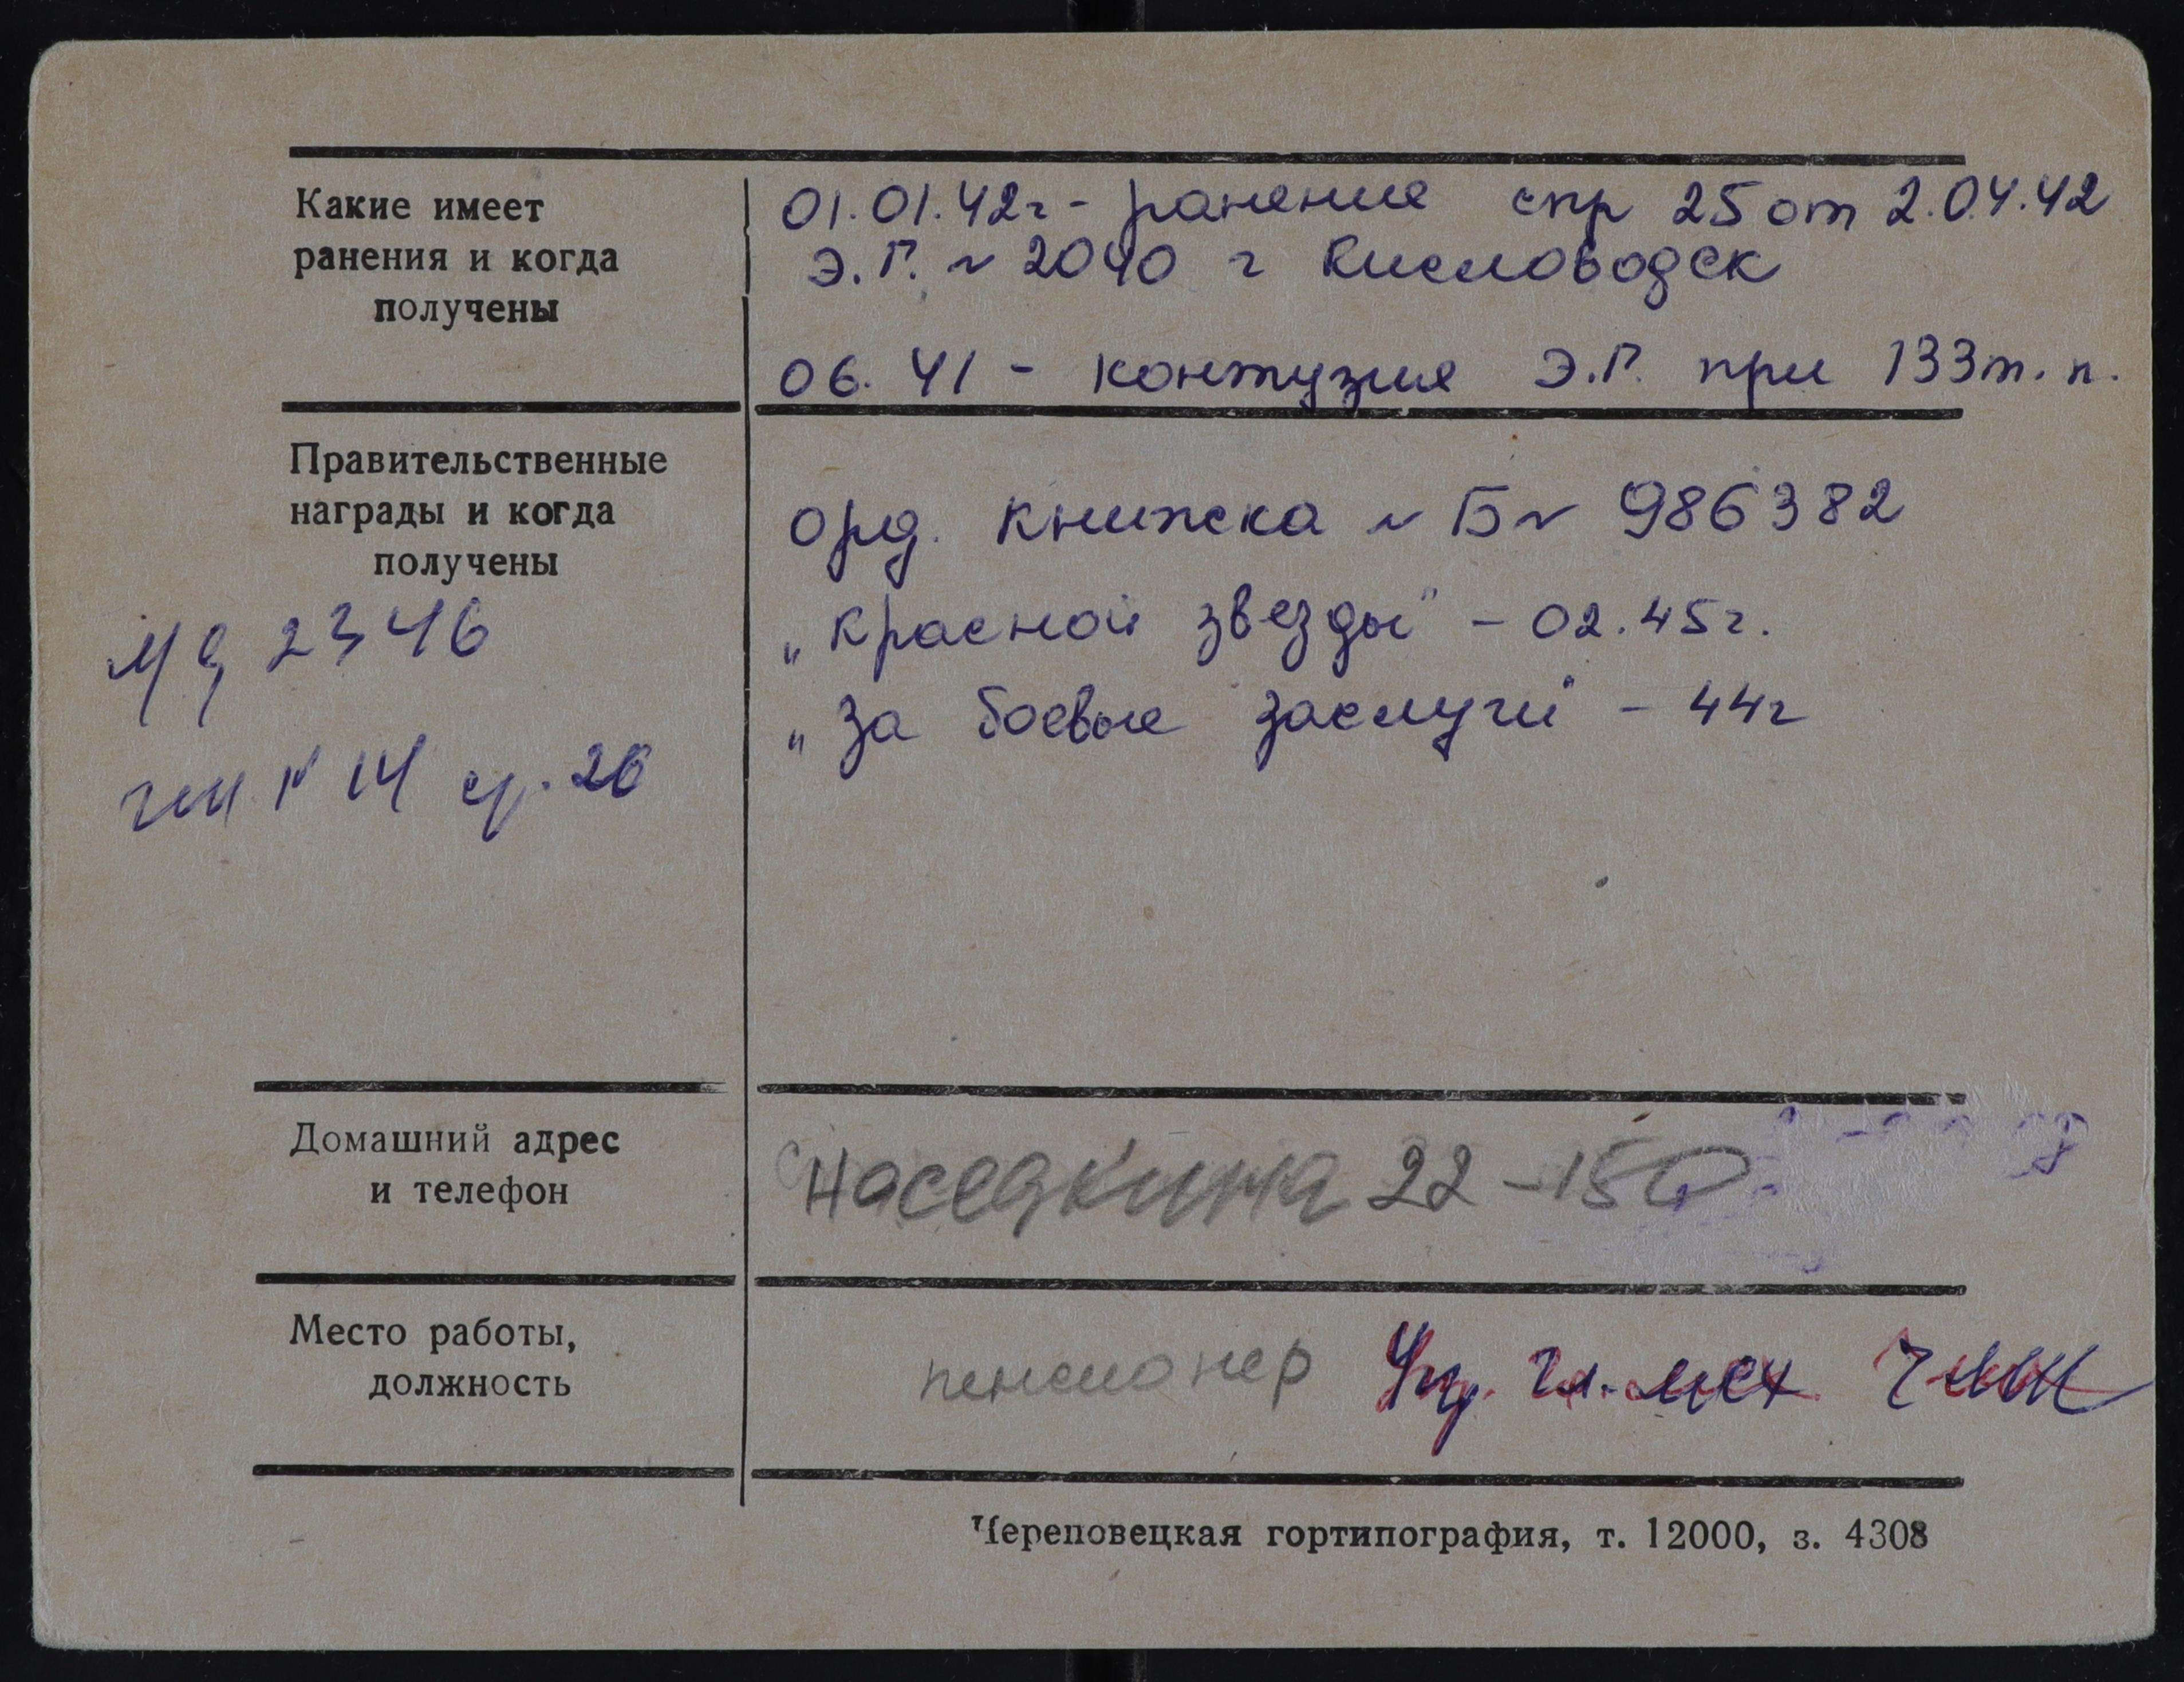 Какие имеет
ранения и когда
получены
01.01.42г - ранение спр 25 от 2.04.42
Э.Г. № 2040 г Кисловодск
06.41 - контузия Э.Г. при 133 т.п.
Правительственные
награды и когда
получены
орд. книжка № Б № 986382
„Красной звезды" - 02.45г.
„За боевые заслуги" - 44г
2346
№ 14 26
Домашний адрес
и телефон
Наседкина 22 - 150
Место работы,
должность
пенсионер гл. мех ЧМК
Череповецкая гортипография, т. 12000, з. 4308